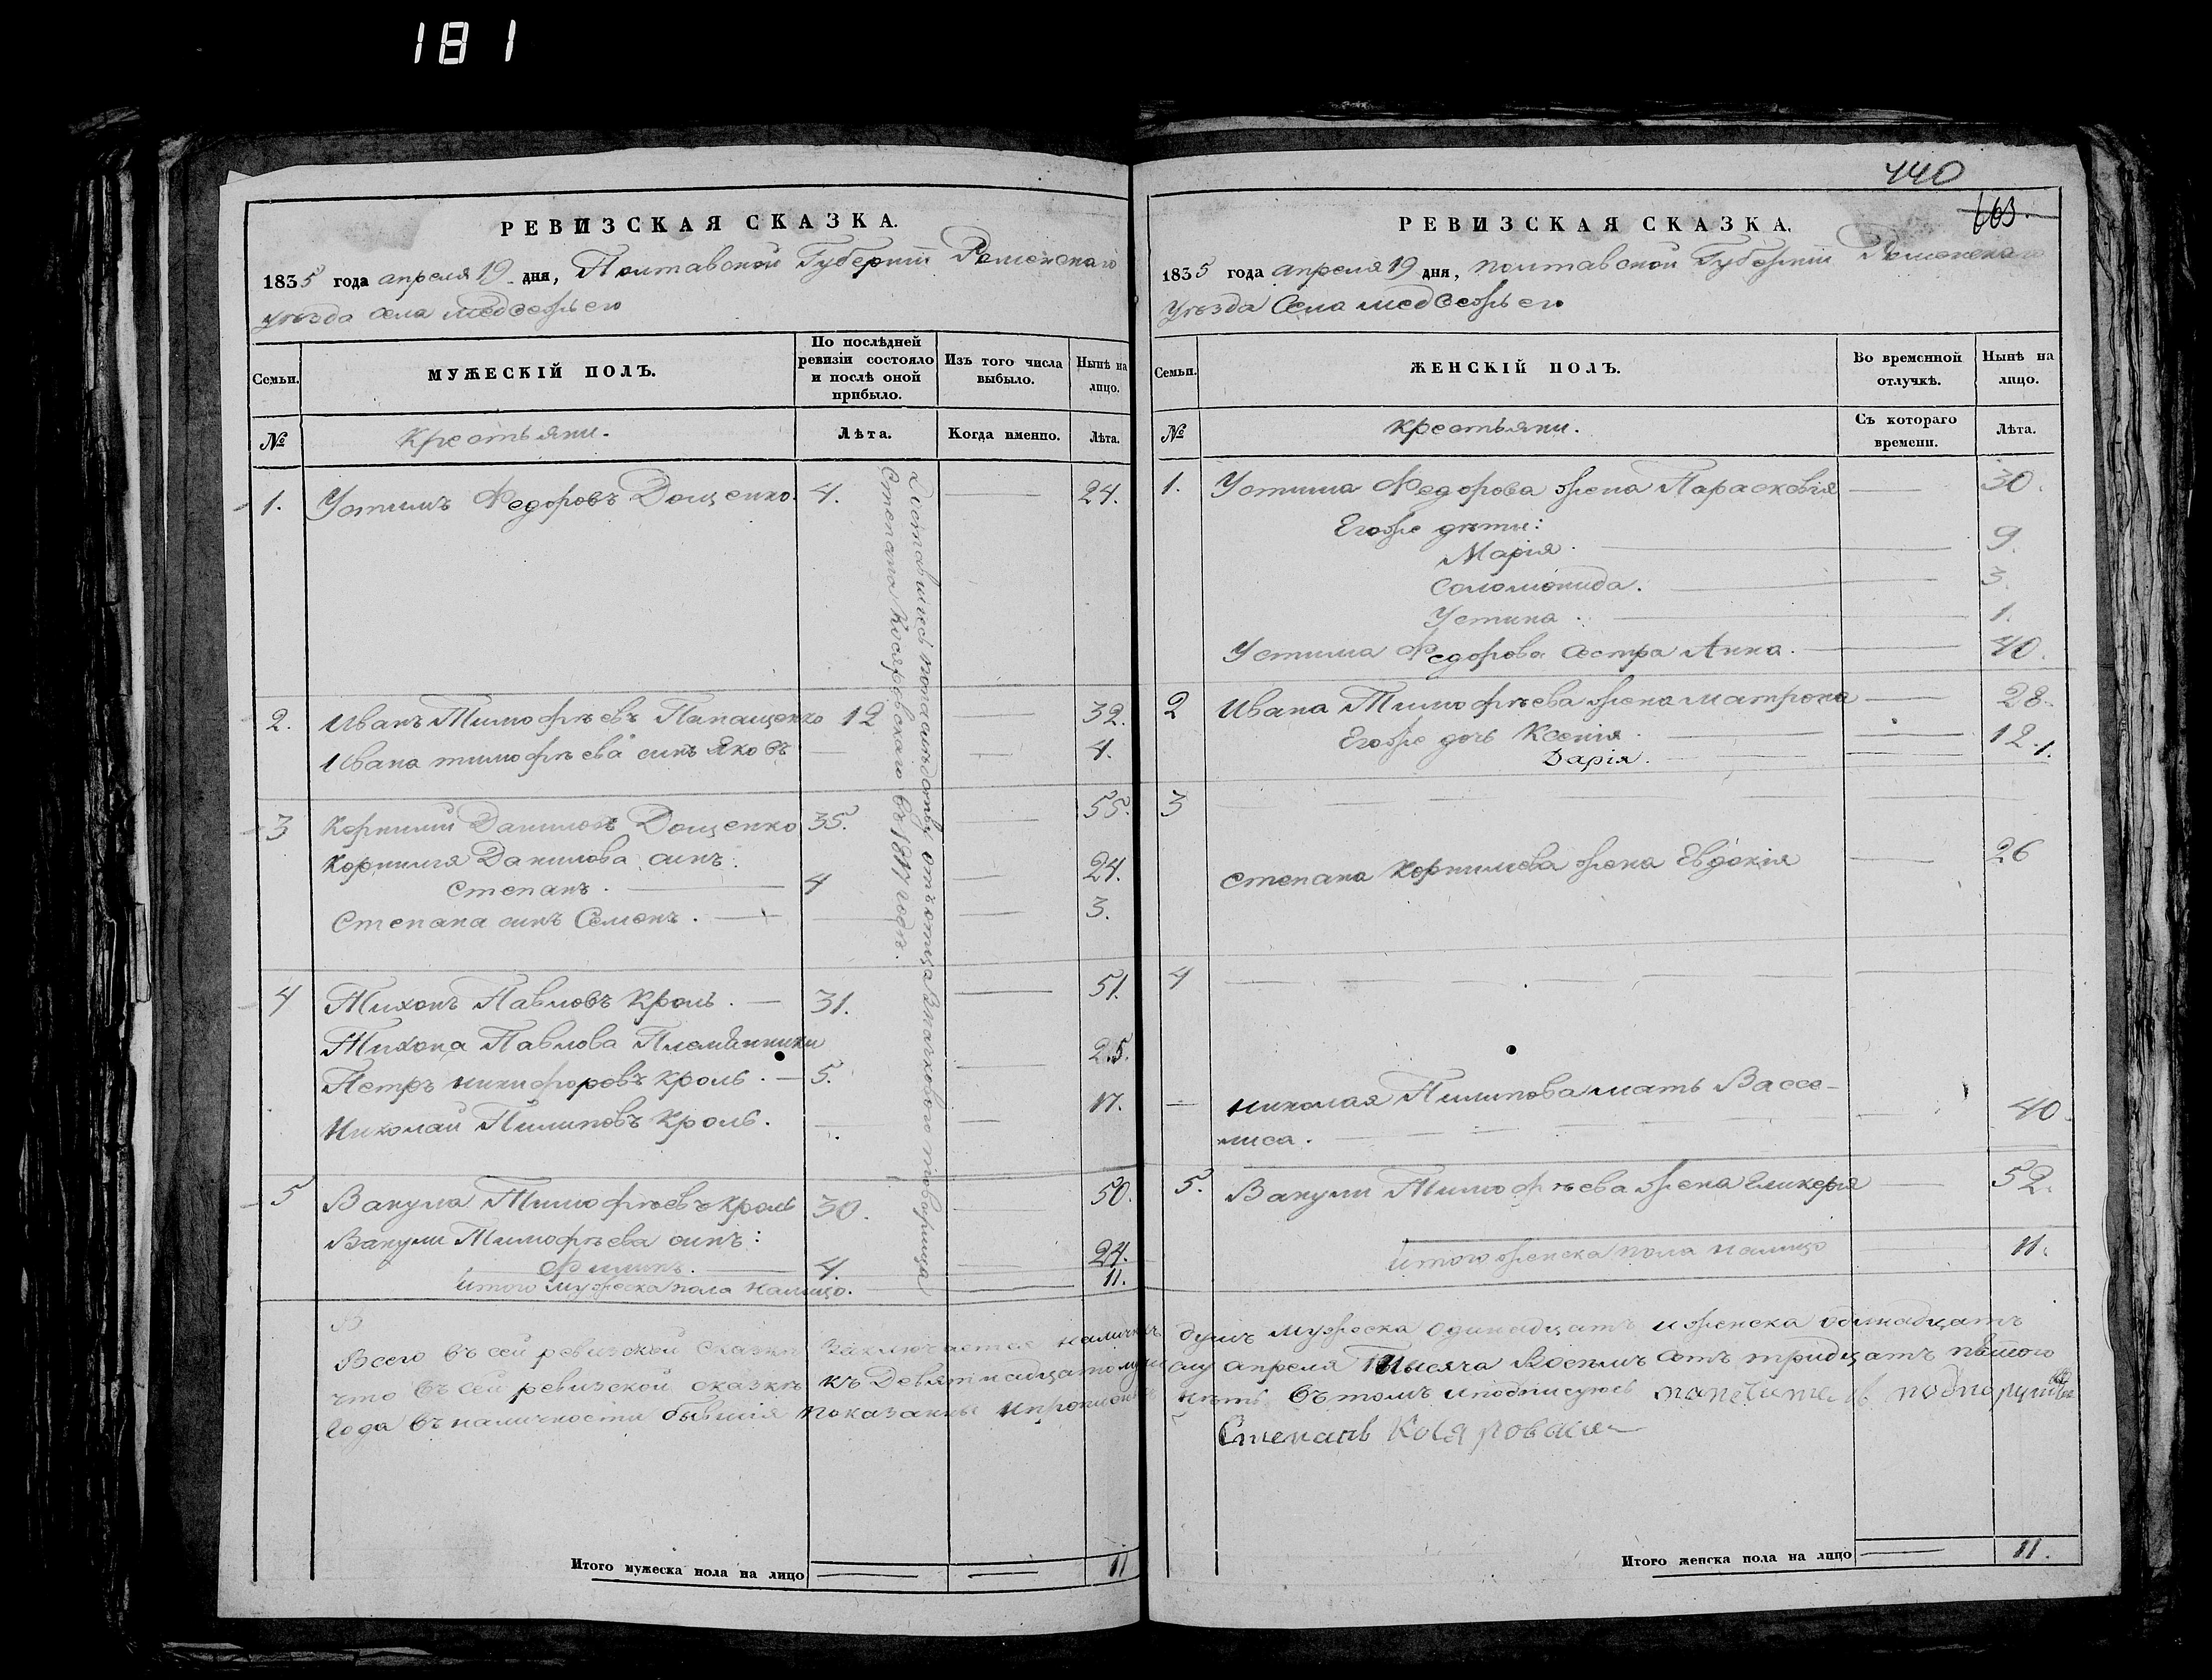 181
РЕВИЗСКАЯ СКАЗКА.
1835 года апреля 19 дня, Полтавской Губернии Роменского
уезда села медвежьего
Семьи.
МУЖЕСКІЙ ПОЛЪ.
По послѣдней ревизіи состояло и послѣ оной прибыло.
Изъ того числа выбыло.
Нынѣ на лицо.
№
Крестьяни.
Лѣта.
Когда именно.
Лѣта.
1. Устимъ Федоровъ Дощенко. 4. 24.
2. Иванъ Тимофѣевъ Папащенко 12 32.
Ивана тимофѣева синъ Яковъ 4.
3 Корнилий Даниловъ Дощенко 35. 55.
Корнилія Данилова синъ
Степанъ. 4 24.
Степана синъ Семенъ. 3.
4 Тихонъ Павловъ Кроль. 31. 51.
Тихона Павлова Племянники
Петръ никифоровъ кроль. 5. 25.
Николай Пилиповъ Кроль. 17.
5 Вакула Тимофѣевъ кроль 30. 50.
Вакули Тимофѣева синъ:
Филипъ. 4. 24.
итого мужеска пола налицо. 11.
Степана Косяровского въ 1817 годѣ.
Всего въ сей ревизской сказки заключается наличнихъ душъ мужеска одинадцать и женска одинадцать
что въ сей ревизской сказкѣ къ Девятнадцатому апреля Тисяча Восемъ сотъ тридцать пятого
Года въ наличности бившія показанны нѣтъ въ томъ и подписуюсь
Степанъ Косяровский
Итого мужеска пола на лицо 11
440
663.
РЕВИЗСКАЯ СКАЗКА.
1835 года апреля 19 дня, полтавской Губернии Роменского
уезда села медвежьего
Семьи.
ЖЕНСКІЙ ПОЛЪ.
Во временной отлучкѣ.
Нынѣ на лицо.
№
крестьяни.
Съ котораго времени.
Лѣта.
1. Устима Федорова жена Параскевія 30.
Егоже дѣти:
Марія. 9.
Соломонида. 3.
Устина. 1.
Устима Федорова сестра Анна. 40.
2 Ивана Тимофѣева жена матрона 28.
Егоже дочь Ксенія. 12.
Дарія. 1.
3
Степана Корнилева жена Евдокія 26
4
Николая Пилипова мать Вассе-
лиса. 40.
5. Вакули Тимофѣева жена гликерія 52.
итого женска пола налицо 11.
Итого женска пола на лицо 11.